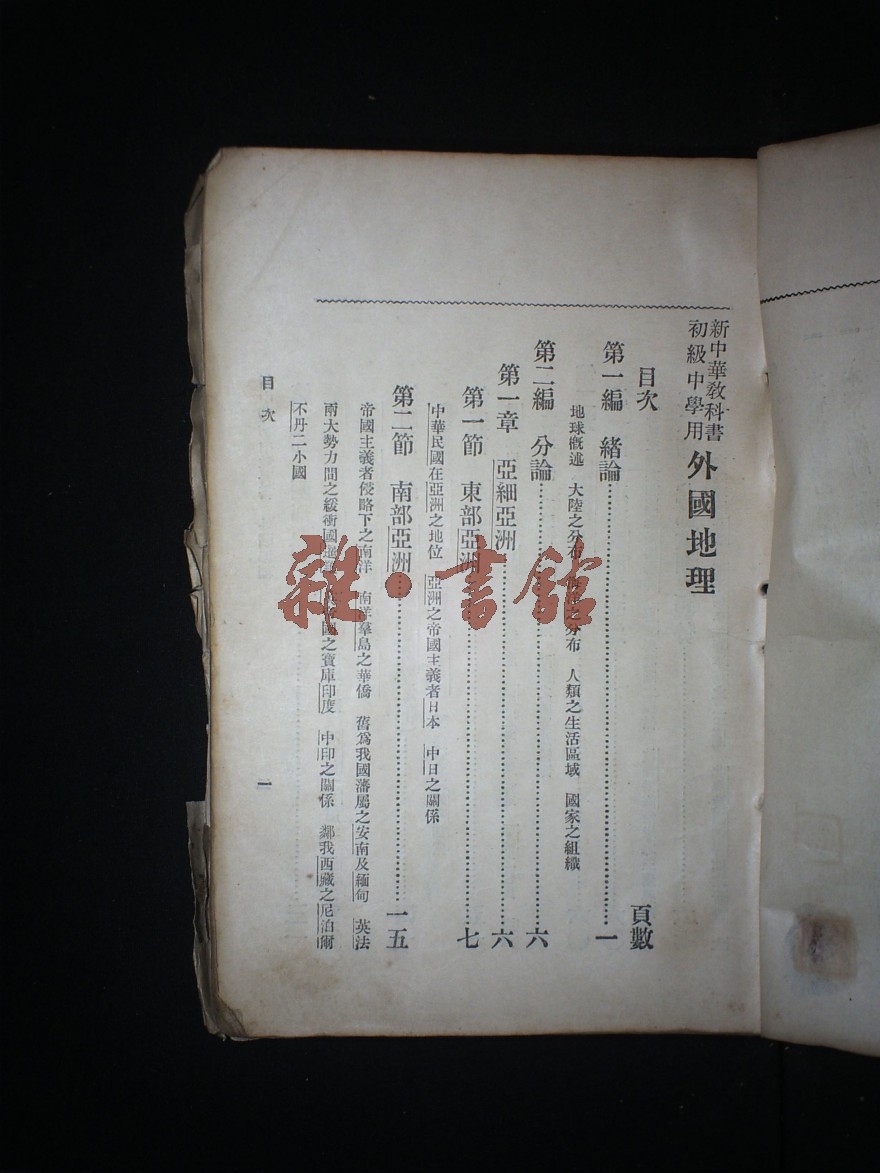 新中華教科書
初級中學用
外國地理
目次 頁數
第一編 緒論 一
地球概述 大陸之分布 之分布 人類之生活區域 國家之組織
第二編 分論 六
第一章 亞細亞洲 六
第一節 東部亞洲 七
中華民國在亞洲之地位 亞洲之帝國主義者日本 中日之關係
第二節 南部亞洲 一五
帝國主義者侵略下之南洋 南洋羣島之華僑 舊爲我國藩屬之安南及緬甸 英法
兩大勢力間之緩衝國暹羅 國之寶庫印度 中印之關係 鄰我西藏之尼泊爾
不丹二小國
目次
一
雜·書館